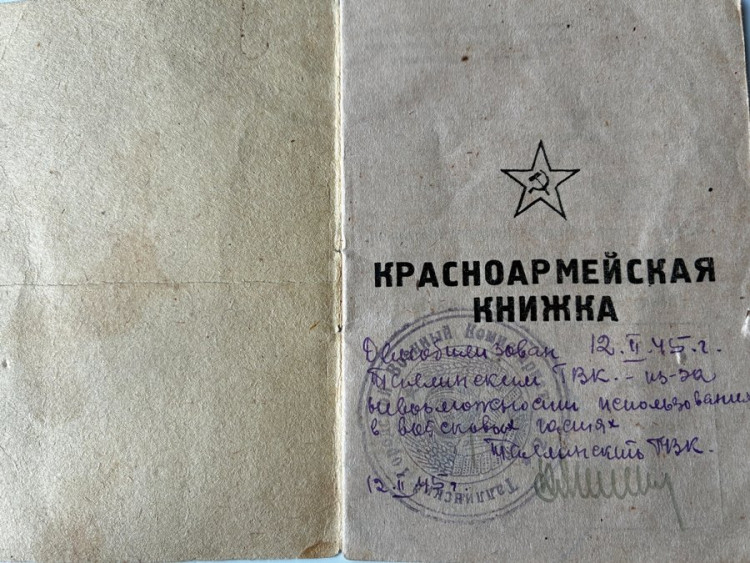 КРАСНОАРМЕЙСКАЯ
КНИЖКА
Демобилизован 12.II.45.г.
Таллинским ГВК. - из-за
невозможности использования
в войсковых частях
Таллинский ГВК.
12.II 45г.
Таллинский Городской Военный